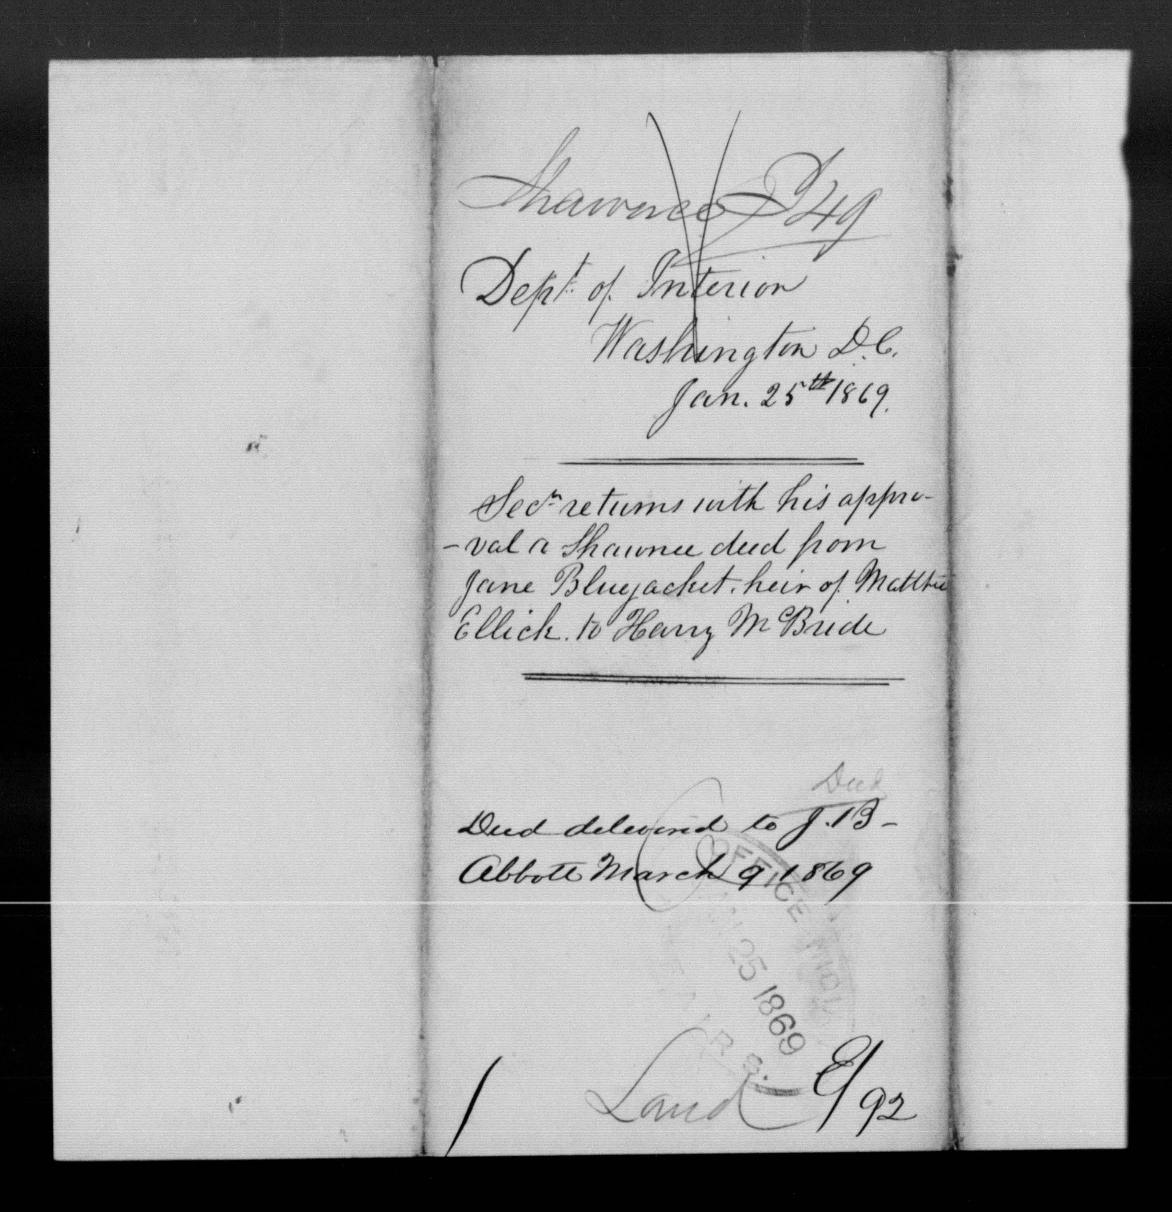 Shawnee I 249
Dept. of Interior
Washington D.C.
Jan. 25th 1869.
Secy returns with his appro-
-val a Shawnee deed from
Jane Bluejacket. heir of Matthew
Ellick. to Harry McBride
Deed
Deed delivered to J. B-
Abbott March 9 1869
OFFICE INDIAN
JAN 25 1869
AFFAIRS.
Land
/92